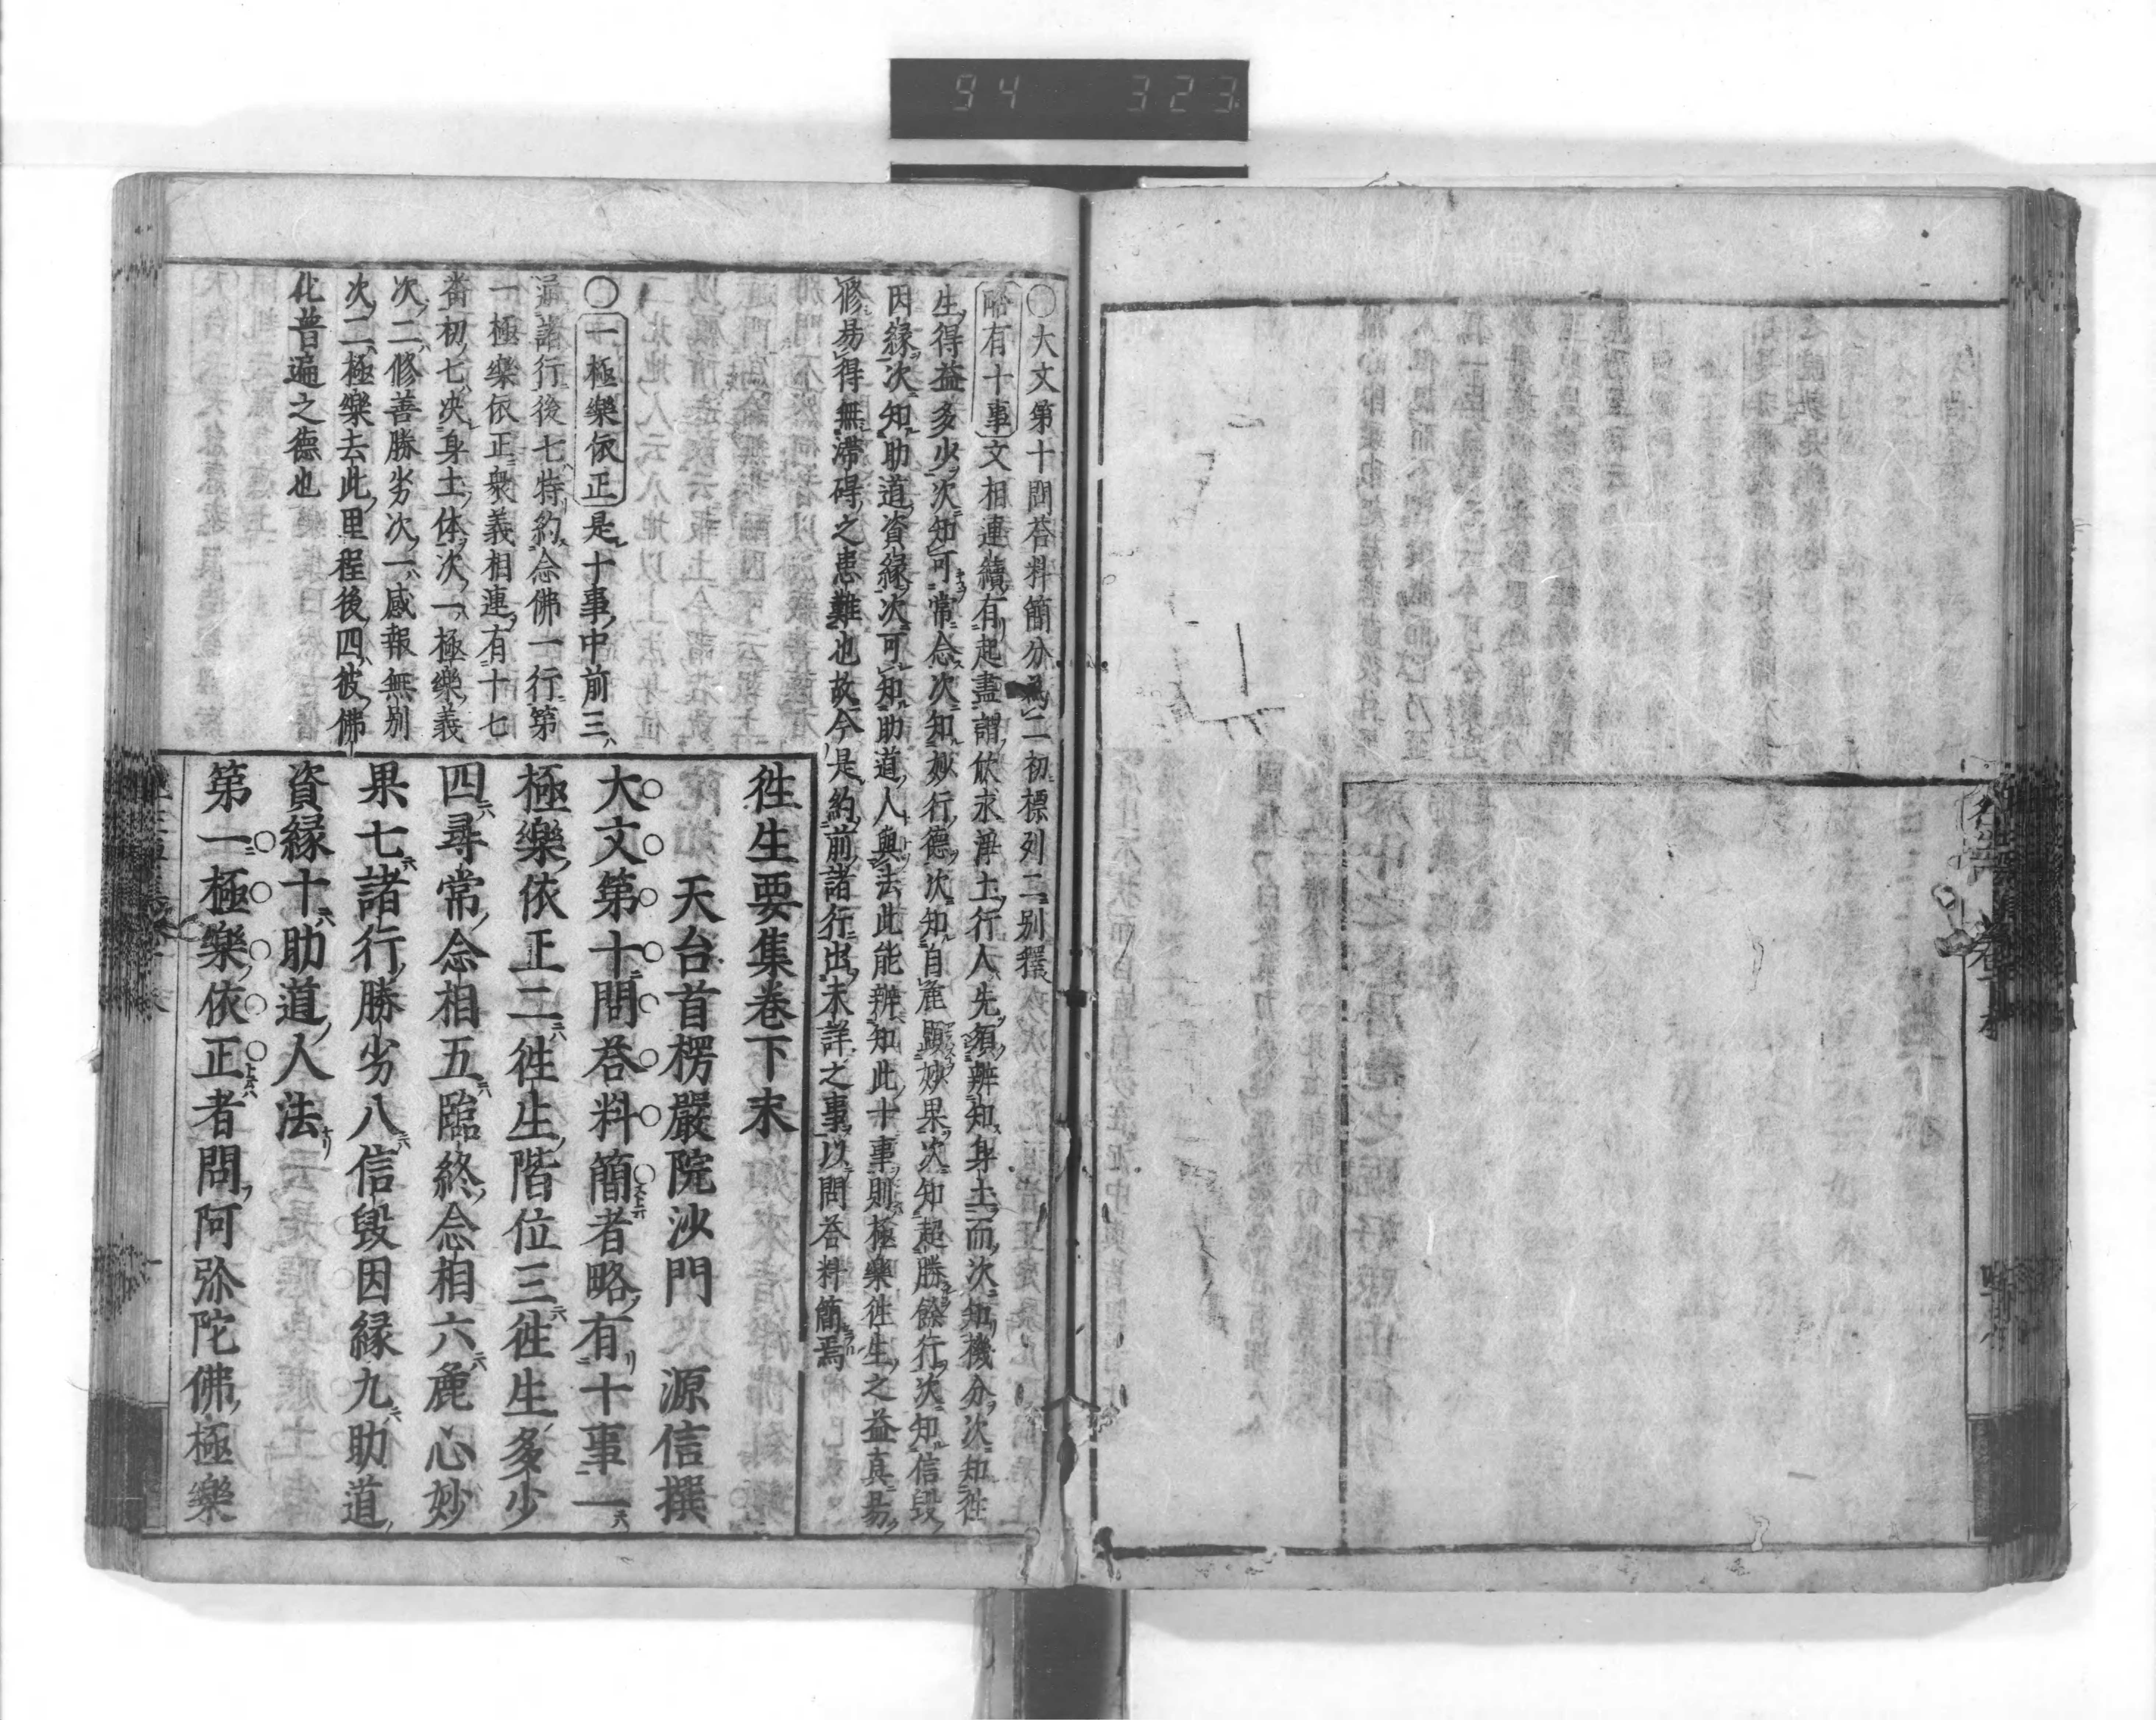 94 323
〇大文第十問荅料簡分為二初標列二別釋
略有十事文相連續有起盡謂欣求淨土行人先須辨知身土而次知機分次知徃
生得益多少次知可常念次知妙行德次知自麁顯妙果次知超勝餘行次知信毀
因緣次知助道資緣次可知助道人與法此能辨知此十事則極樂徃生之益真易
修易得無滯碍之患難也故今是約前諸行出未詳之事以問荅料簡焉
〇一極樂依正是十事中前三
通諸行後七特約念佛一行第
一極樂依正衆義相連有十七
番初七决身土体次一極樂義
次二修善勝劣次一感報無別
次二極樂去此里程後四彼佛
化普遍之德也
徃生要集卷下末
天台首楞嚴院沙門 源信撰
大文第十問荅料簡者略有十事一
極樂依正二徃生階位三徃生多少
四尋常念相五臨終念相六麁心妙
果七諸行勝劣八信毀因緣九助道
資緣十助道人法
第一極樂依正者問阿弥陀佛極樂